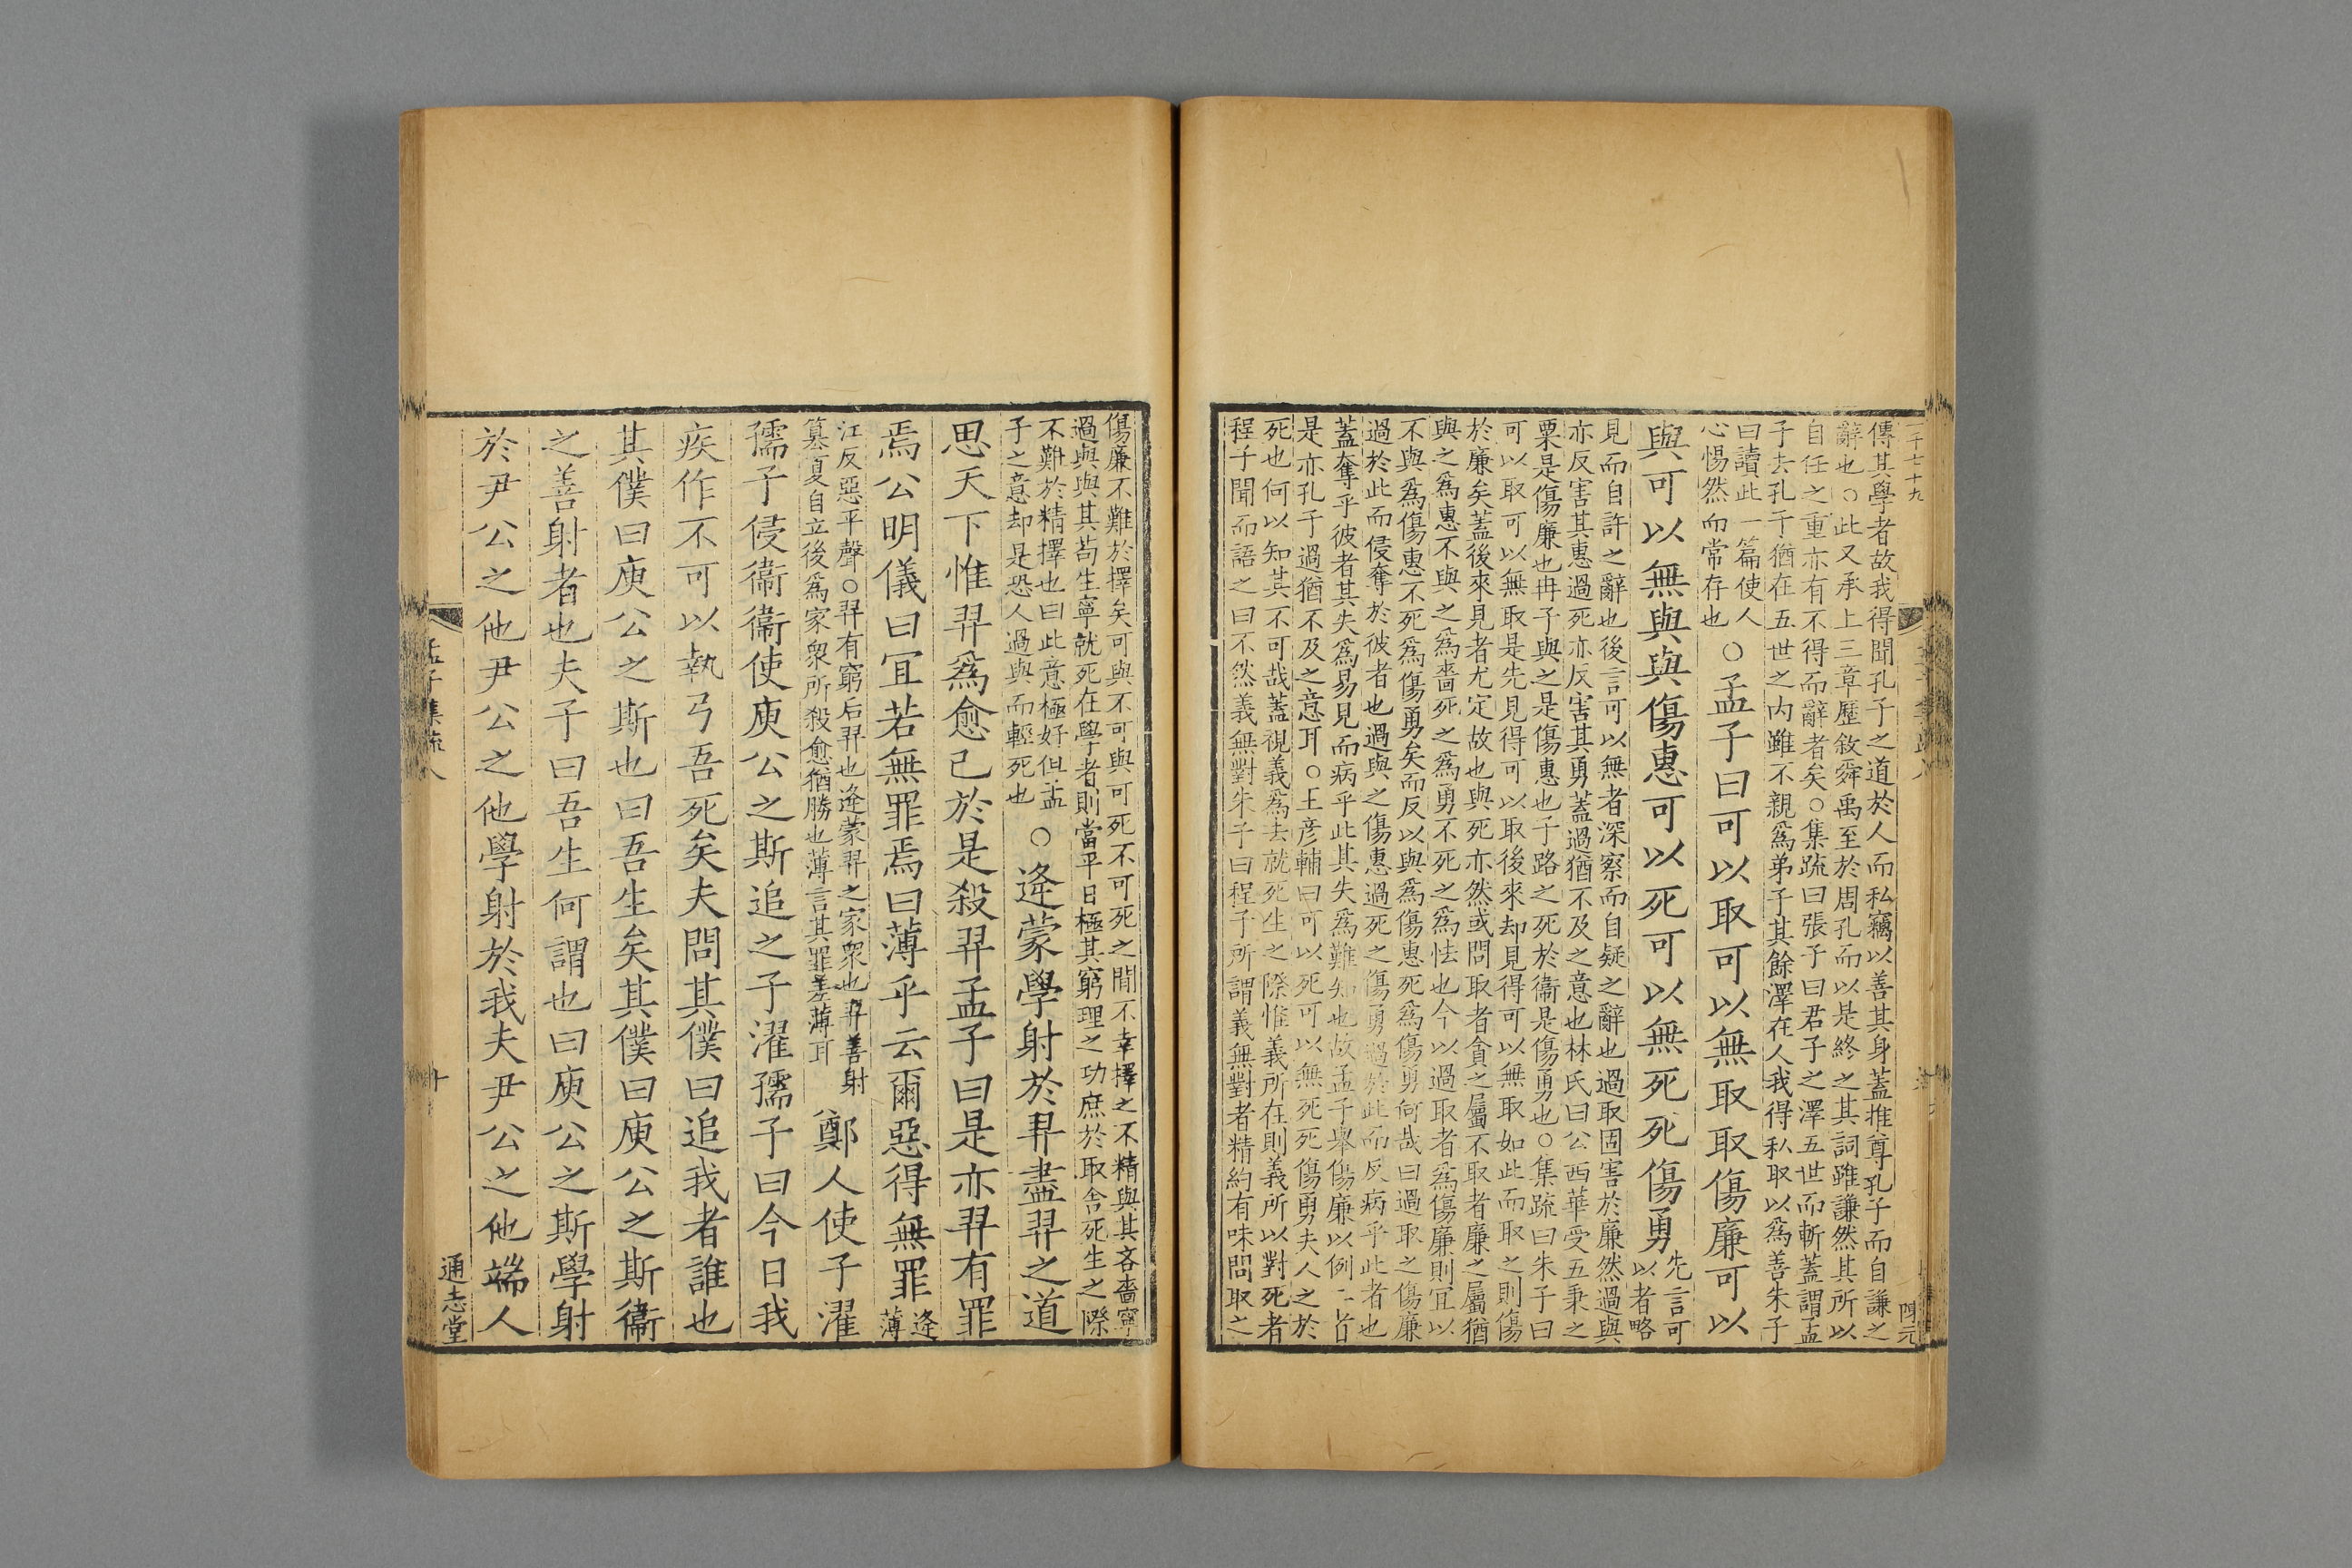 傳其學者故我得聞孔子之道於人而私竊以善其身蓋推尊孔子而自謙之
辭也○此又承上三章歷敘舜禹至於周孔而以是終之其詞雖謙然其所以
自任之重亦有不得而辭者矣○集疏曰張子曰君子之澤五世而斬蓋謂孟
子去孔子猶在五世之內雖不親爲弟子其餘澤在人我得私取以爲善朱子
曰讀此一篇使人
心惕然而常存也
○孟子曰可以取可以無取取傷廉可以
與可以無與與傷惠可以死可以無死死傷勇
先言可
以者略
見而自許之辭也後言可以無者深察而自疑之辭也過取固害於廉然過與
亦反害其惠過死亦反害其勇蓋過猶不及之意也林氏曰公西華受五秉之
粟是傷廉也冉子與之是傷惠也子路之死於衞是傷勇也○集疏曰朱子曰
可以取可以無取是先見得可以取後來却見得可以無取如此而取之則傷
於廉矣蓋後來見者尤定故也與死亦然或問取者貪之屬不取者廉之屬猶
與之爲惠不與之爲嗇死之爲勇不死之爲怯也今以過取者爲傷廉則宜以
不與爲傷惠不死爲傷勇矣而反以與爲傷惠死爲傷勇何哉曰過取之傷廉
過於此而侵奪於彼者也過與之傷惠過死之傷勇過於此而反病乎此者也
蓋奪乎彼者其失爲易見而病乎此其失爲難知也故孟子舉傷廉以例二者
是亦孔子過猶不及之意耳○王彦輔曰可以死可以無死死傷勇夫人之於
死也何以知其不可哉蓋視義爲去就死生之際惟義所在則義所以對死者
程子聞而語之曰不然義無對朱子曰程子所謂義無對者精約有味問取之
傷廉不難於擇矣可與不可與可死不可死之閒不幸擇之不精與其吝嗇寧
過與與其苟生寧就死在學者則當平日極其窮理之功庶於取舍死生之際
不難於精擇也曰此意極好但孟
子之意却是恐人過與而輕死也
○逄蒙學射於羿盡羿之道
思天下惟羿爲愈己於是殺羿孟子曰是亦羿有罪
焉公明儀曰宜若無罪焉曰薄乎云爾惡得無罪
逄
薄
江反惡平聲○羿有窮后羿也逄蒙羿之家衆也羿善射
篡夏自立後爲家衆所殺愈猶勝也薄言其罪差薄耳
鄭人使子濯
孺子侵衞衞使庾公之斯追之子濯孺子曰今日我
疾作不可以執弓吾死矣夫問其僕曰追我者誰也
其僕曰庾公之斯也曰吾生矣其僕曰庾公之斯衞
之善射者也夫子曰吾生何謂也曰庾公之斯學射
於尹公之他尹公之他學射於我夫尹公之他端人
孟子集疏八
十
通志堂